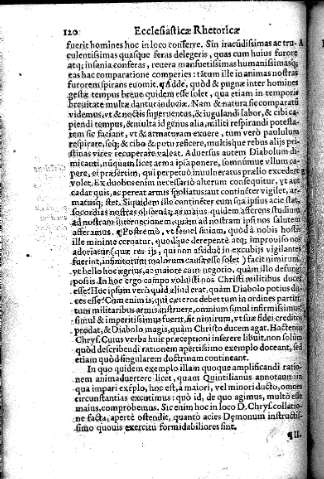 120 Ecclesiasticæ Rhetoricæ
fuerit homines hoc in loco conferre. Sin iracũdissimas ac tru-
culentissimas quasque feras delegeris, quas cum huius furore
atq; insania conferas, reuera mansuetissimas humanissimasq;
eas hac comparatione comperies: tãtum ille in animas nostras
furorem spirans euomit. ¶ Adde, quòd & pugnæ inter homines
gestæ tempus breue quidem esse solet, qua etiam in temporis
breuitate multæ dantur induciæ. Nam & natura sic comparatũ
videmus, vt & noctis superuentus, & iugulandi labor, & cibi ca-
piendi tempus, & multa id genus alia, militi respirandi potesta-
tem sic faciant, vt & armaturam exuere, tum verò paululum
respirare, seq; & cibo & potu reficere, multisque rebus alijs pri-
stinas vires recuperare valeat. Aduersus autem Diabolum di-
micanti, nũquam licet arma deponere, somnũque vllum ca-
pere, ei præsertim, qui perpetuò inuulneratus prælio excedere
volet. Ex duobus enim necessariò alterum consequitur, vt aut
cadat quis, ac pereat armis spoliatus: aut continuò vigilet, ar-
matusq; stet. Siquidem ille continuò cum sua ipsius acie stat,
socordias nostras obseruãs, ac maius quidem afferens studium
ad nostram interitionem, quàm ad nostram ipsi nos salutem
afferamus. ¶ Postremò, vt semel finiam, quòd à nobis hostis
ille minimè cernatur, quodque derepentè atq; improuiso nos
adoriatur
fuerit, infinitorum malorum causa esse solet) facit nimirum,
vt bello hoc ægriùs, ac maiore cum negotio, quàm illo defungi
possis. In hoc ergo campo voluisti nos Christi militibus duces
esse? Hoc ipsum verò quid aliud erat, quàm Diabolo potius du-
ces esse? Cum enim is, qui cæteros debet tum in ordines partiri,
tum militaribus armis instruere, omnium simul infirmissimus,
simul & imperitissimus fuerit, fit nimirum, vt suæ fidei creditos
prodat, & Diabolo magis, quàm Christo ducem agat. Hactenus
Chrys. Cuius verba huic præceptioni inserere libuit, non solùm
quòd describendi rationem apertissimo exemplo doceant, sed
etiam quòd singularem doctrinam contineant.
In quo quidem exemplo illam quoque amplificandi ratio-
nem animaduertere licet, quam Quintilianus annotauit in
qua impari exẽplo, hoc est, à maiori, vel minori ducto, omnes
circunstantias excutimus: quò id, de quo agimus, multò esse
maius, comprobemus. Sic enim hoc in loco D. Chrys. collatio-
ne facta, apertè ostendit, quantò acies Dæmonum instructis-
simo quouis exercitu formidabiliores sint.
¶ II.